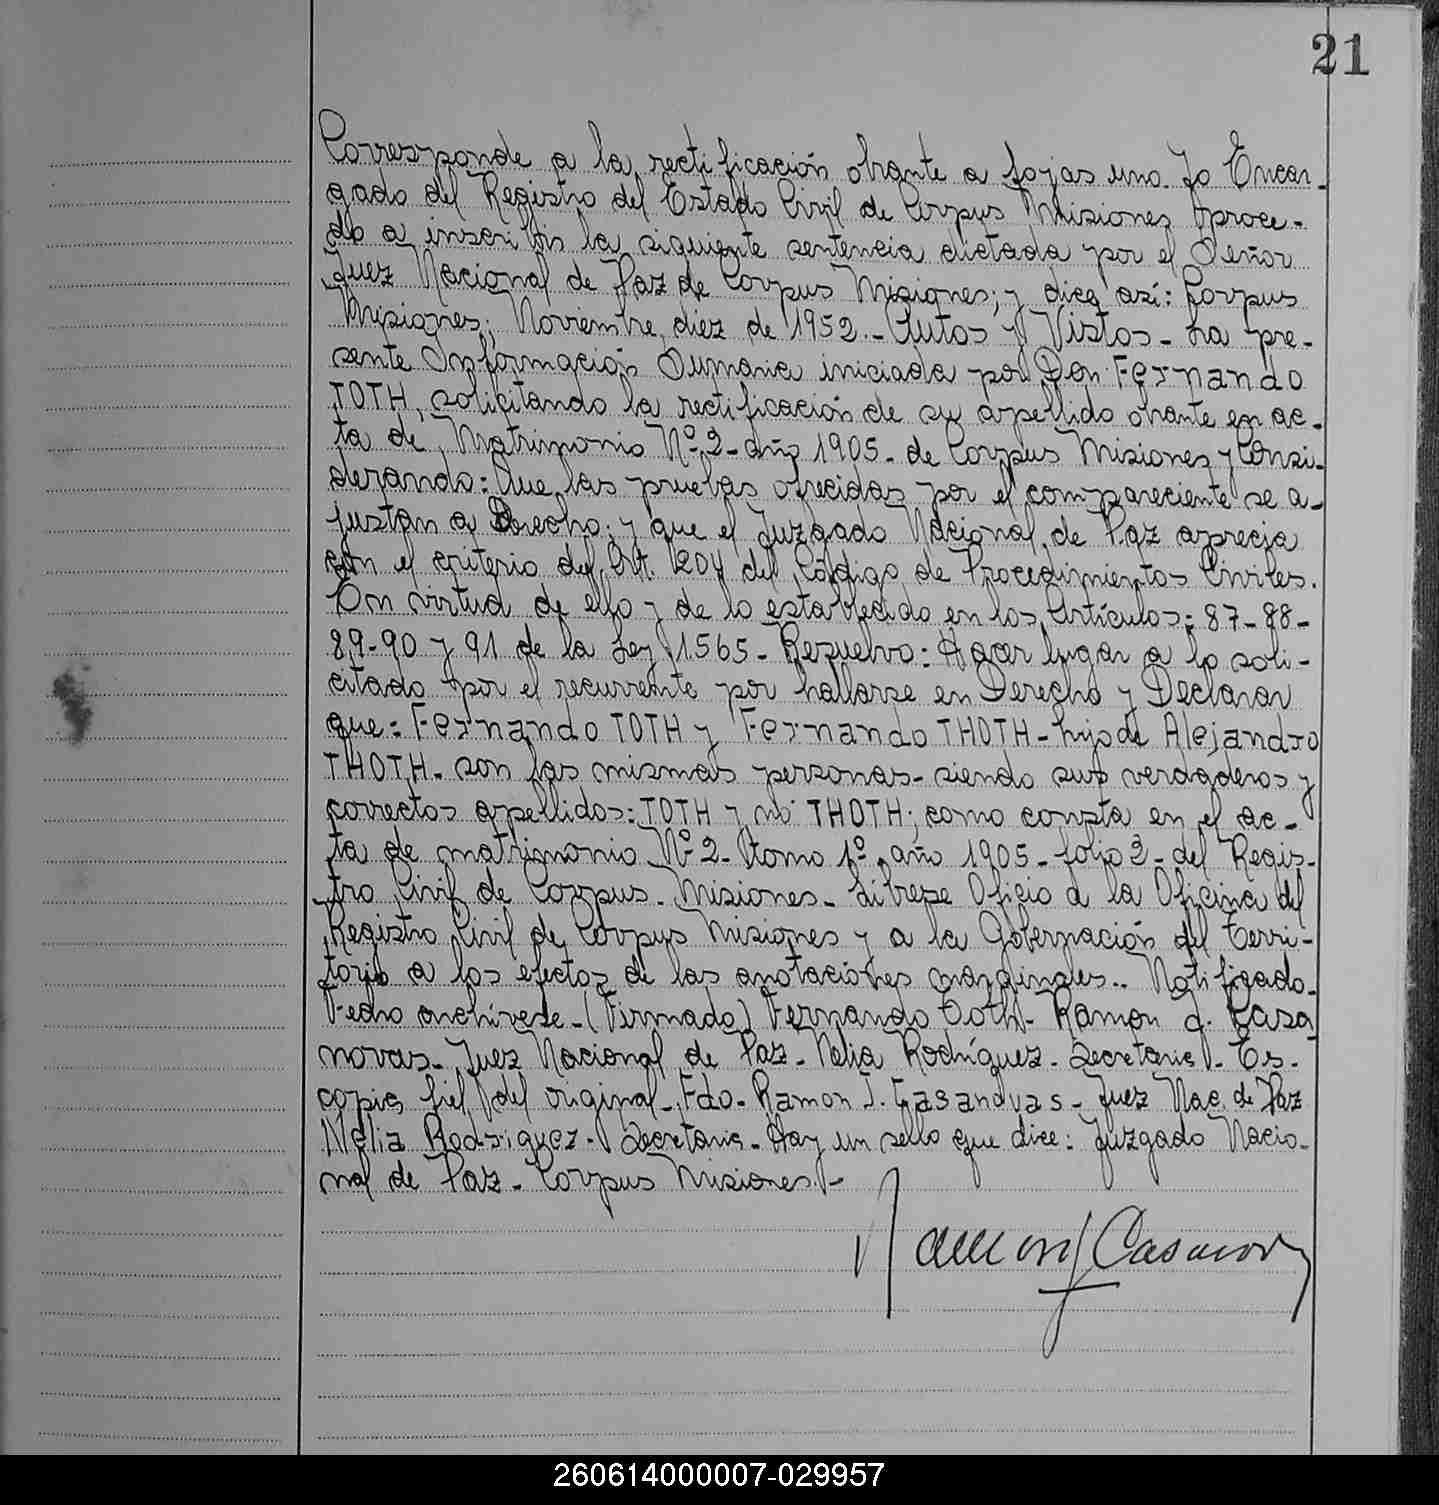 21
Corresponde a la rectificación obrante a fojas uno. Yo Encar-
gado del Registro del Estado Civil de Corpus Misiones proce-
do a inscribir la siguiente sentencia dictada por el Señor
Juez Nacional de Paz de Corpus Misiones; y dice así: Corpus
Misiones; Noviembre diez de 1952.- Autos y Vistos- La pre-
sente Información Sumaria iniciada por Don Fernando
TOTH, solicitando la rectificación de su apellido obrante en ac-
ta de Matrimonio Nº 2- año 1905- de Corpus Misiones y Consi-
derando: Que las pruebas ofrecidas por el compareciente se a-
justan a Derecho; y que el Juzgado Nacional de Paz aprecia
con el criterio del Art. 1204 del Código de Procedimientos Civiles.
En virtud de ello y de lo establecido en los Artículos: 87-88-
89-90 y 91 de la Ley 1565- Resuelvo: Hacer lugar a lo soli-
citado por el recurrente por hallarse en Derecho y Declarar
que: Fernando TOTH y Fernando THOTH- hijo de Alejandro
THOTH- son las mismas personas- siendo sus verdaderos y
correctos apellidos: TOTH y no THOTH; como consta en el ac-
ta de matrimonio Nº 2- tomo 1º año 1905- folio 2- del Regis-
tro Civil de Corpus- Misiones- Librese Oficio a la Oficina del
Registro Civil de Corpus Misiones y a la Gobernación del Terri-
torio a los efectos de las anotaciones marginales.. Notificado-
Fecho archivese-(Firmado) Fernando Toth- Ramon J. Casa
novas- Juez Nacional de Paz- Nelia Rodríguez- Secretaria- Es-
copia fiel del original- Fdo- Ramon J. Casanovas- Juez Nac. de Paz
Nelia Rodriguez- Secretaria- Hay un sello que dice: Juzgado Nacio-
nal de Paz- Corpus Misiones.-
Ramon J Casanovas
260614000007-029957